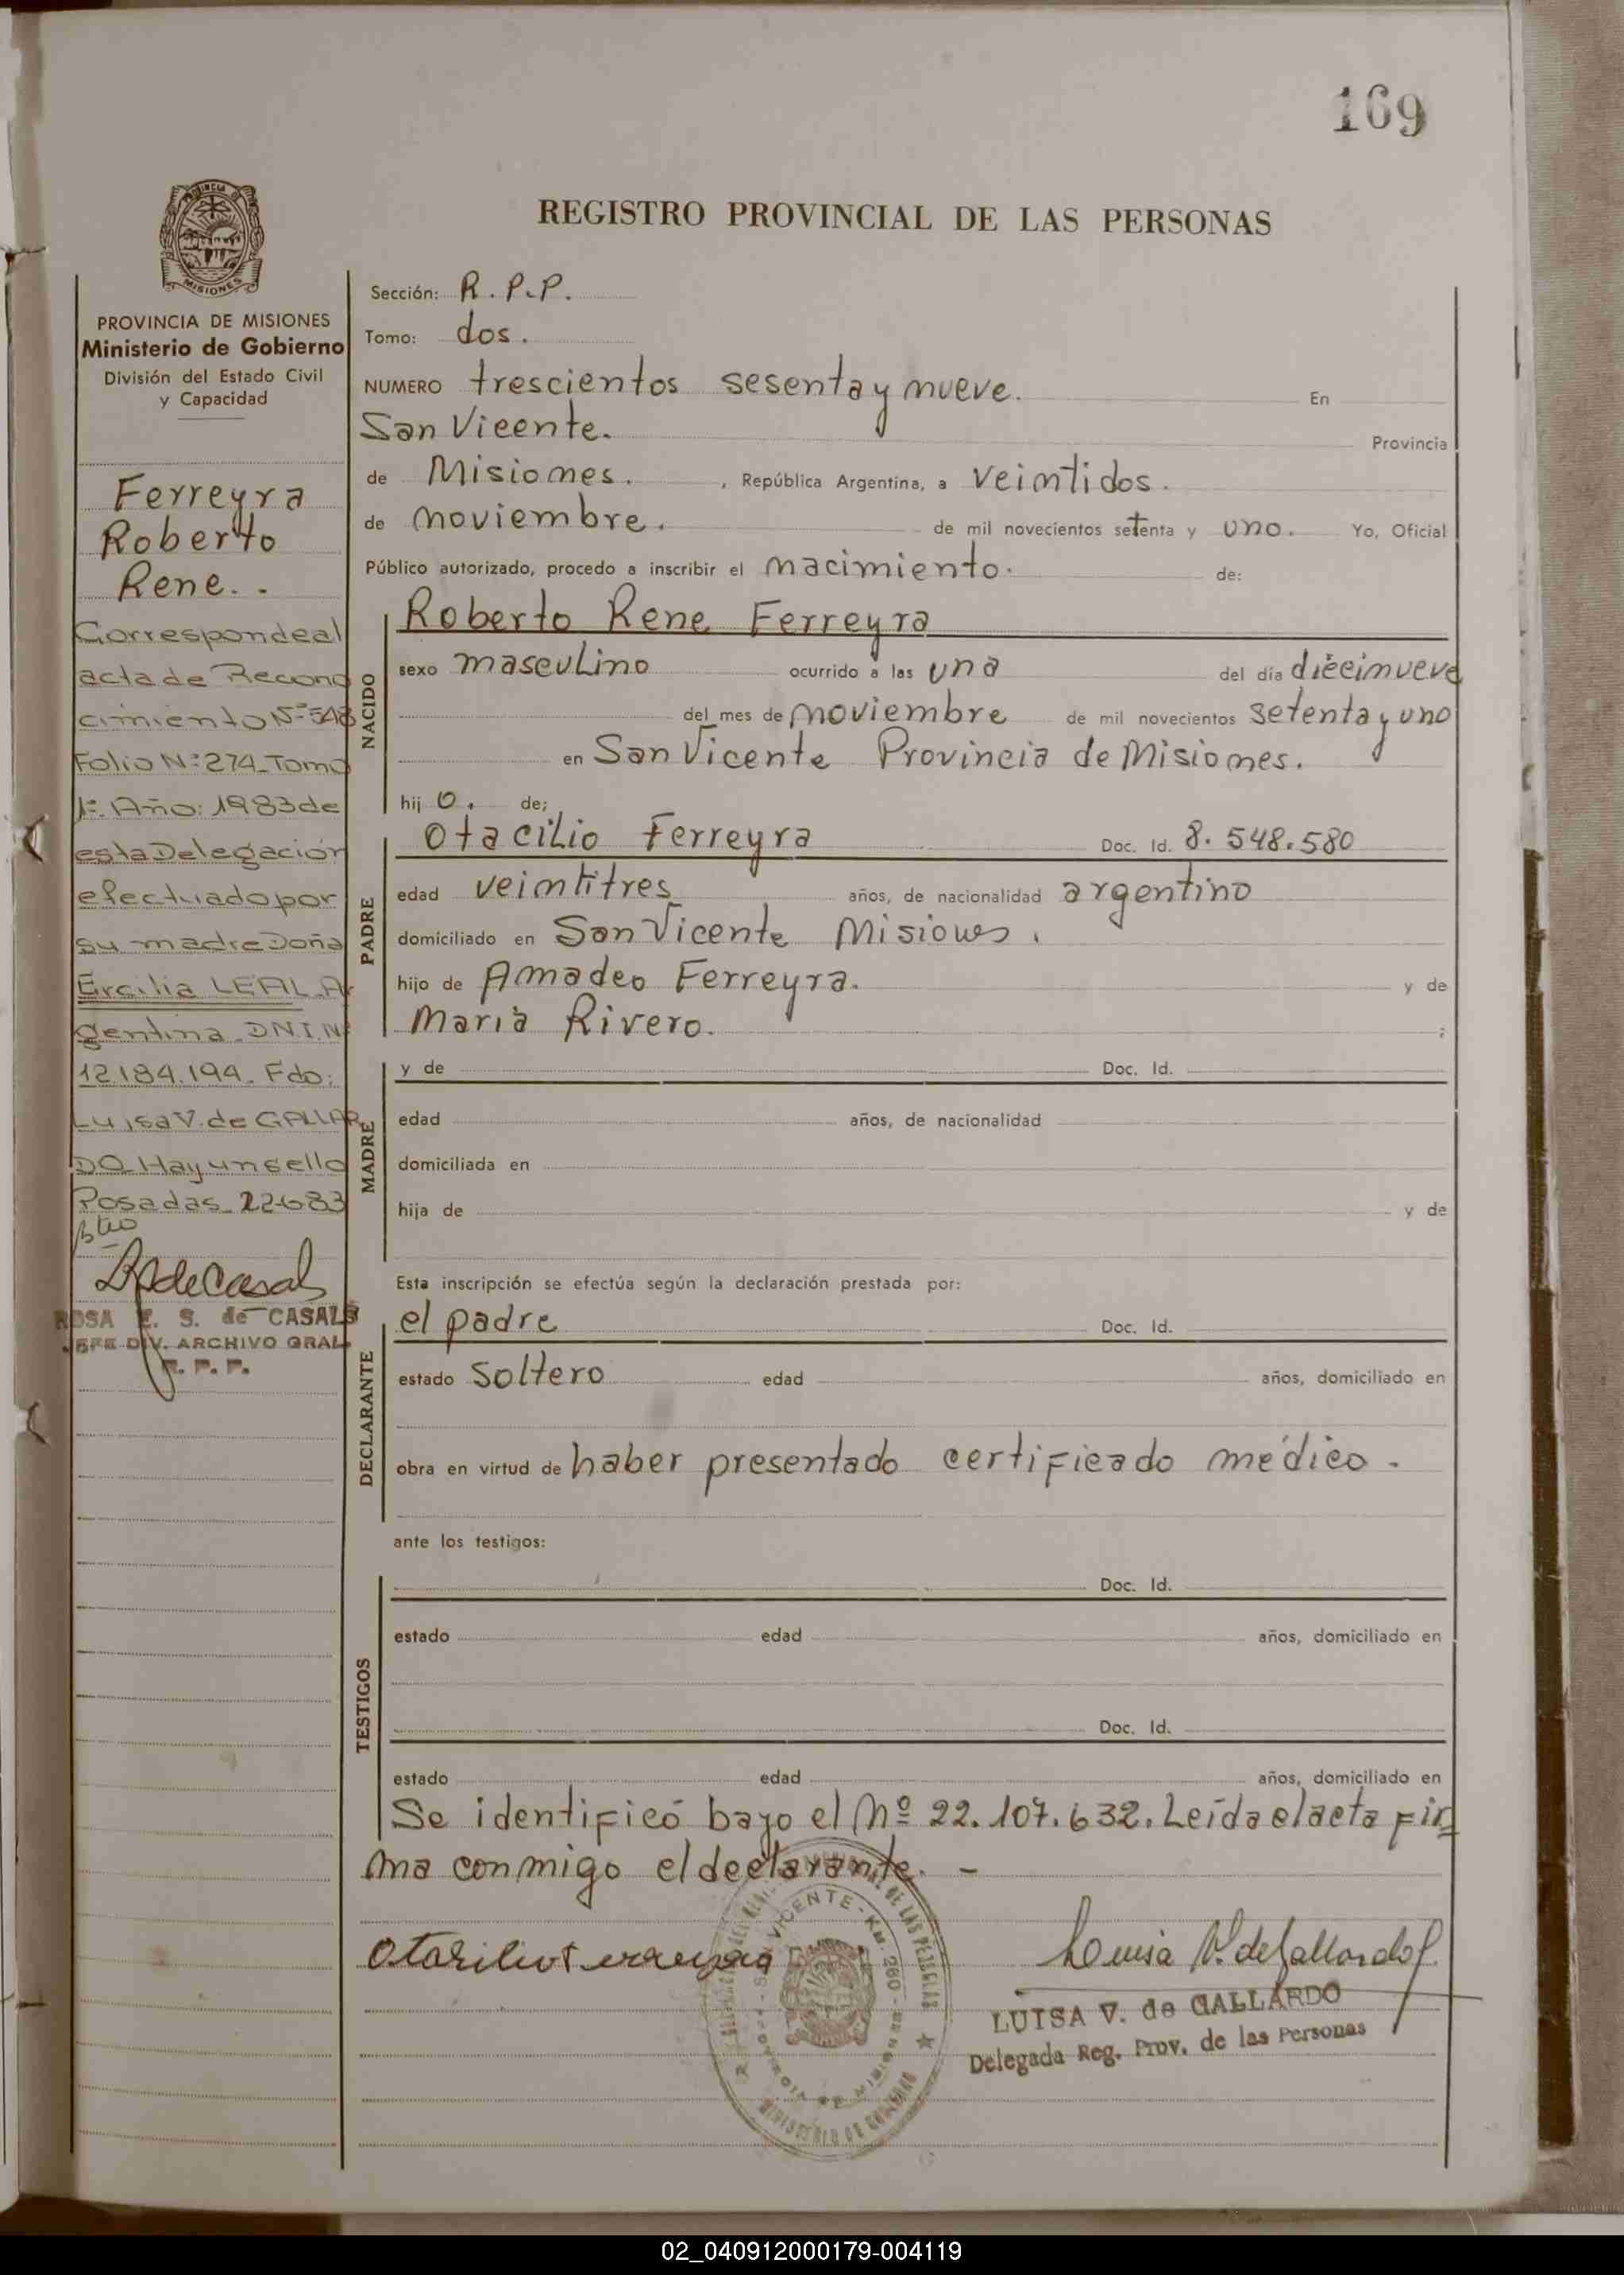 169
REGISTRO PROVINCIAL DE LAS PERSONAS
PROVINCIA DE MISIONES
Ministerio de Gobierno
División del Estado Civil
y Capacidad
Ferreyra
Roberto
Rene..
Corresponde al
acta de Recono
cimiento Nº 548
Folio Nº 274 Tomo
1º. Año: 1983 de
esta Delegación
efectuado por
su madre Doña
Ercilia LEAL Ar
gentina DNI Nº
12.184.194. Fdo:
Luisa V. de GALLAR
DO Hay un sello
Posadas 22-6-83
ROSA E. S. de CASALS
JEFE DIV. ARCHIVO GRAL.
R. P. P.
Sección: R. P.P.
Tomo: dos.
NUMERO trescientos sesenta y nueve. En
San Vicente. Provincia
de Misiones. , República Argentina, a veintidos.
de noviembre. de mil novecientos setenta y uno. Yo, Oficial
Público autorizado, procedo a inscribir el nacimiento. de:
NACIDO
Roberto Rene Ferreyra
sexo masculino ocurrido a las una del día diecinueve
del mes de noviembre de mil novecientos setenta y uno
en San Vicente Provincia de Misiones.
hij o. de;
PADRE
Otacilio Ferreyra Doc. Id. 8.548.580
edad veintitres años, de nacionalidad argentino
domiciliado en San Vicente Misiones.
hijo de Amadeo Ferreyra. y de
Maria Rivero. ;
MADRE
y de Doc. Id.
edad años, de nacionalidad
domiciliada en
hija de y de
Esta inscripción se efectúa según la declaración prestada por:
DECLARANTE
el padre Doc. Id.
estado soltero edad años, domiciliado en
obra en virtud de haber presentado certificado médico.
ante los testigos:
TESTIGOS
Doc. Id.
estado edad años, domiciliado en
Doc. Id.
estado edad años, domiciliado en
Se identificó bajo el Nº 22.107.632. Leída el acta fir
ma conmigo el declarante. -
Otasilio Ferreyra
Luisa V. de Gallardo
LUISA V. de GALLARDO
Delegada Reg. Prov. de las Personas
02_040912000179-004119